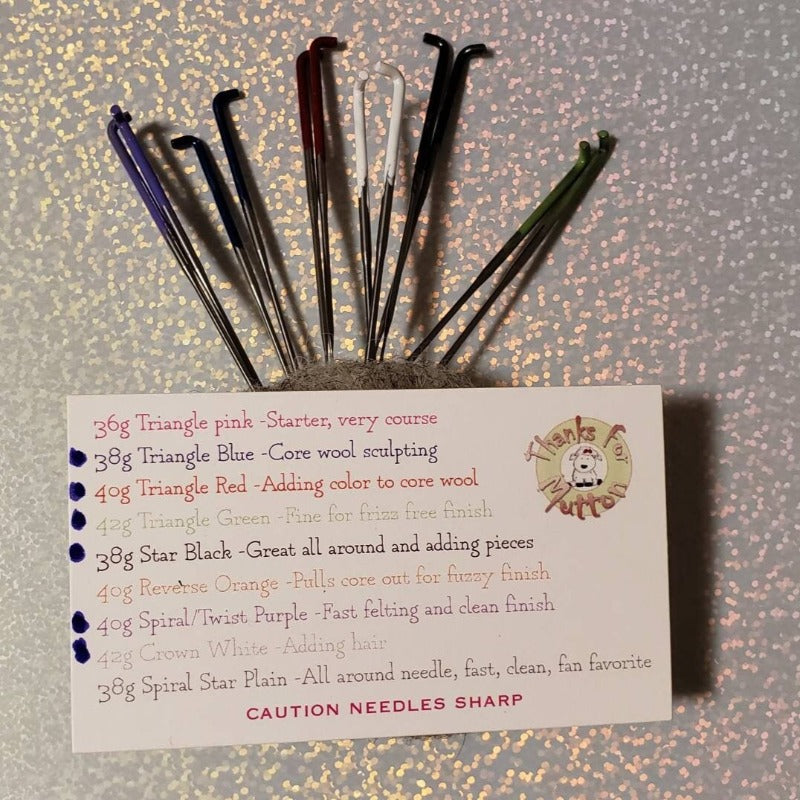 36g Triangle pink -Starter, very course
38g Triangle Blue -Core wool sculpting
40g Triangle Red -Adding color to core wool
42g Triangle Green -Fine for frizz free finish
38g Star Black -Great all around and adding pieces
40g Reverse Orange -Pulls core out for fuzzy finish
40g Spiral/Twist Purple -Fast felting and clean finish
42g Crown White -Adding hair
38g Spiral Star Plain -All around needle, fast, clean, fan favorite
CAUTION NEEDLES SHARP
Thanks For
Mutton